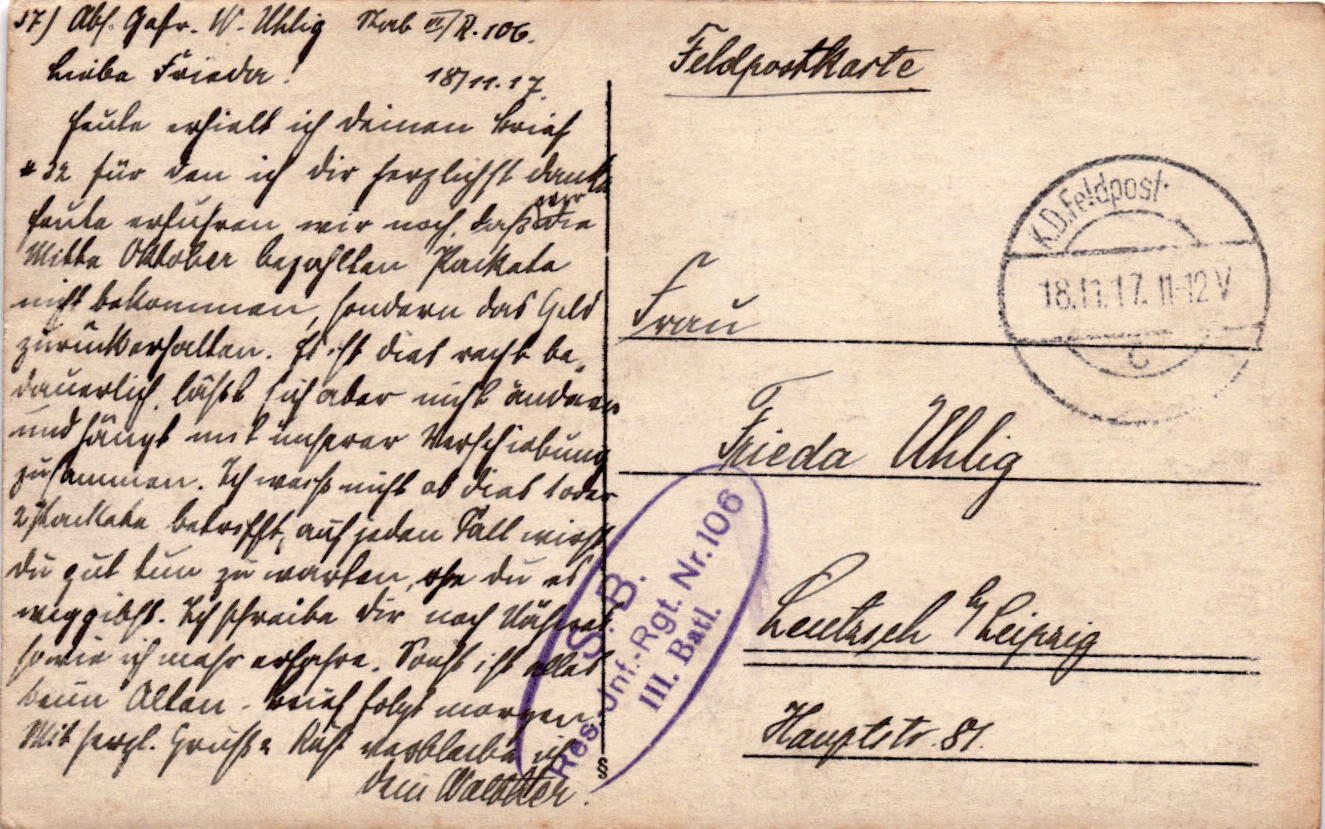 37) Abs. Gefr. W. Uhlig Stab III/R. 106.
Liebe Frieda! 18/11.17.
Heute erhielt ich deinen Brief
#32 für den ich dir herzlichst danke
heute erfuhren wir noch, daß wir die
Mitte Oktober bezahlten Packete
nicht bekommen, sondern das Geld
zurückerhalten. Es ist dies recht be-
dauerlich, läßt sich aber nicht ändern
und hängt mit unserer Verschiebung
zusammen. Ich weiß nicht ob dies 1 oder
2 Packete betrifft, auf jeden Fall wirst
du gut tun zu warten, ehe du es
weggibst. Ich schreibe dir noch Näheres
sowie ich mehr erfahre. Sonst ist alles
beim Alten - Brief folgt morgen.
Mit herzl. Gruß u. Kuß verbleibe ich
dein Walther.
Feldpostkarte
K.D. Feldpost
18.11.17. 11-12 V
c
Frau
Frieda Uhlig
Leutzsch b/ Leipzig
Hauptstr. 81.
S. B.
Res.-Inf.-Rgt. Nr. 106
III. Batl.
§